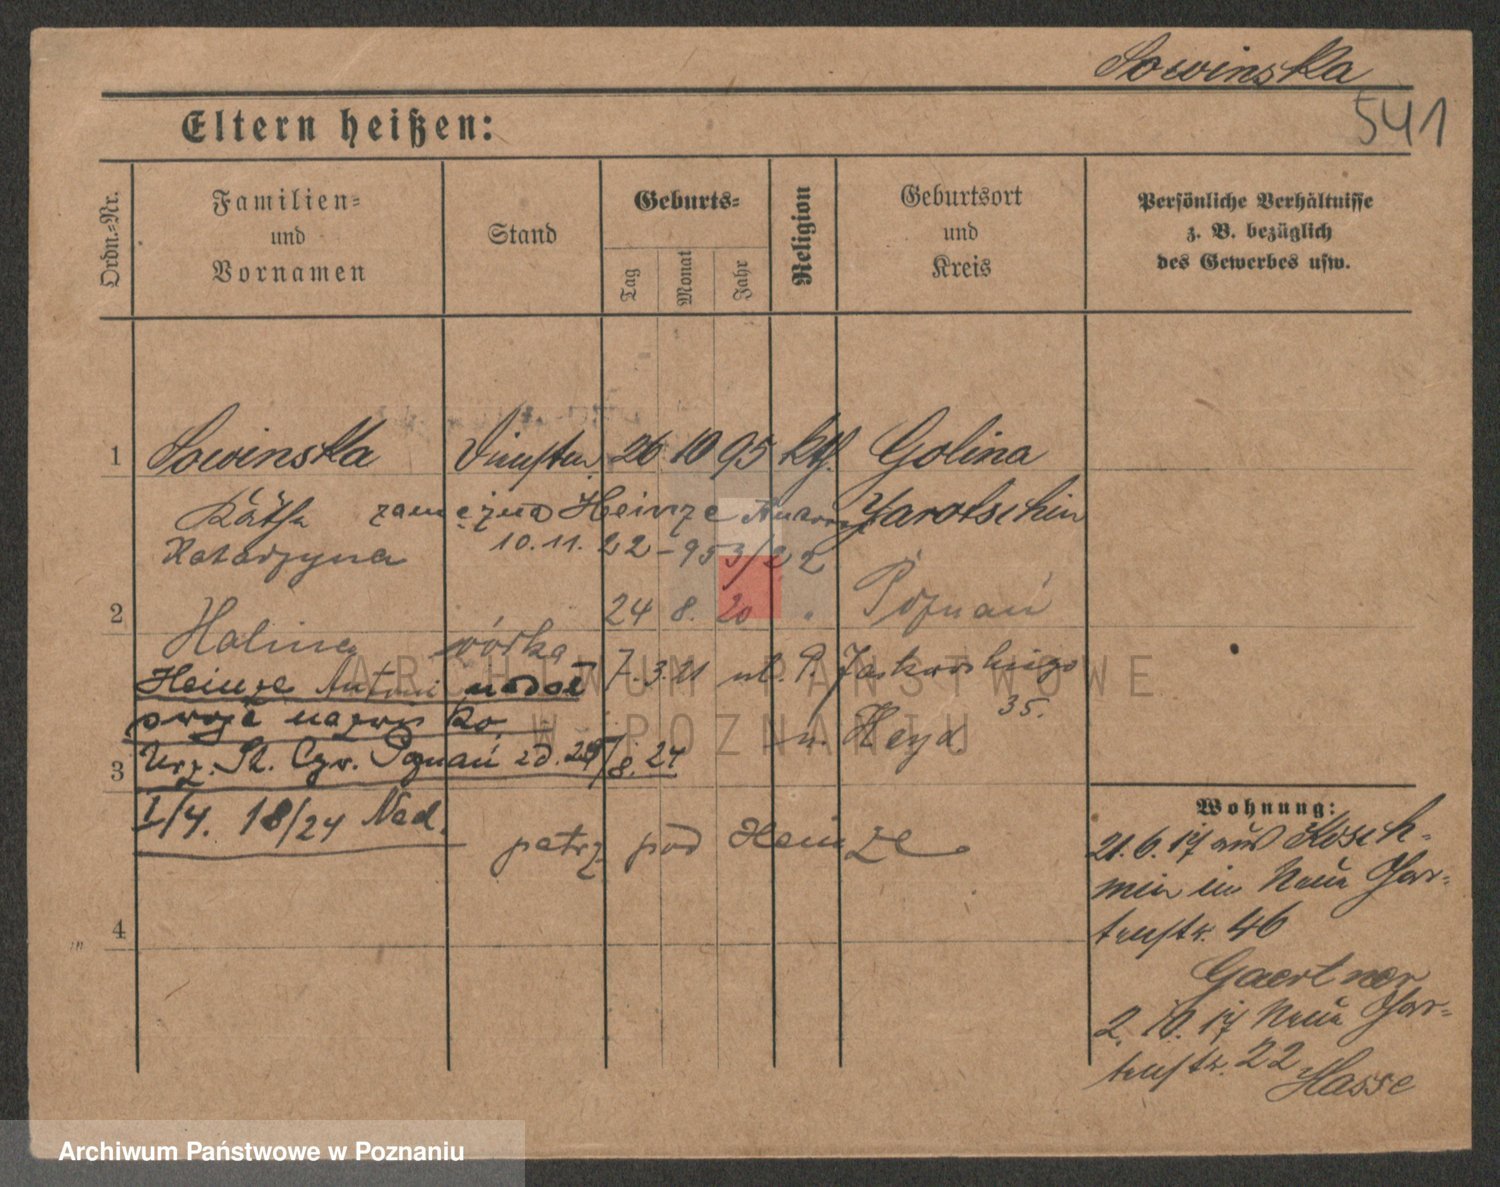 Sowinska
541
Eltern heißen:
Ordn.-Nr.
Familien-
und
Vornamen
Stand
Geburts-
Tag
Monat
Jahr
Religion
Geburtsort
und
Kreis
Persönliche Verhältnisse
z. B. bezüglich
des Gewerbes usw.
1 Sowinska 26 10 95 kth. Golina
Käthe zamężna Heinze Jarotschin
Katarzyna 10.11.22-953/22
2 24 8. 20 " Poznań
Halina córka
Heinze Antoni nadał 7.3.21 ul. P. Jackowskiego
swoje nazwisko, 35.
u. Heyd
3 Urz. St. Cyw. Poznań 8. 24
I/4. 18/24 Ned.
patrz pod Heinze
4
Wohnung:
21.6.17 aus Kosch-
min in Neue Gar-
tenstr. 46
Gaertner
2.10.17 Neue Gar-
tenstr. 22
Hasse
ARCHIWUM PAŃSTWOWE
W POZNANIU
Archiwum Państwowe w Poznaniu